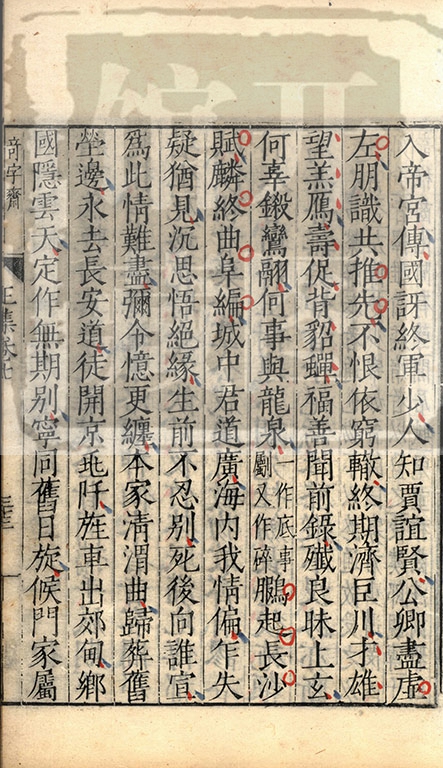 入帝宮傳國訝終軍少人知賈誼賢公卿盡虛
左朋識共推先不恨依窮轍終期濟巨川才雄
望羔鴈壽促背貂蟬福善聞前錄殲良昧上玄
何辜鎩鸞翮何事與龍泉一作底事劚又作碎鵩起長沙
賦麟終曲阜編城中君道廣海內我情偏乍失
疑猶見沉思悟絕緣生前不忍別死後向誰宣
為此情難盡彌令憶更纏本家清渭曲歸葬舊
塋邊永去長安道徒開京兆阡旌車出郊甸鄉
國隱雲天定作無期別寧同舊日旋候門家屬
奇字齋